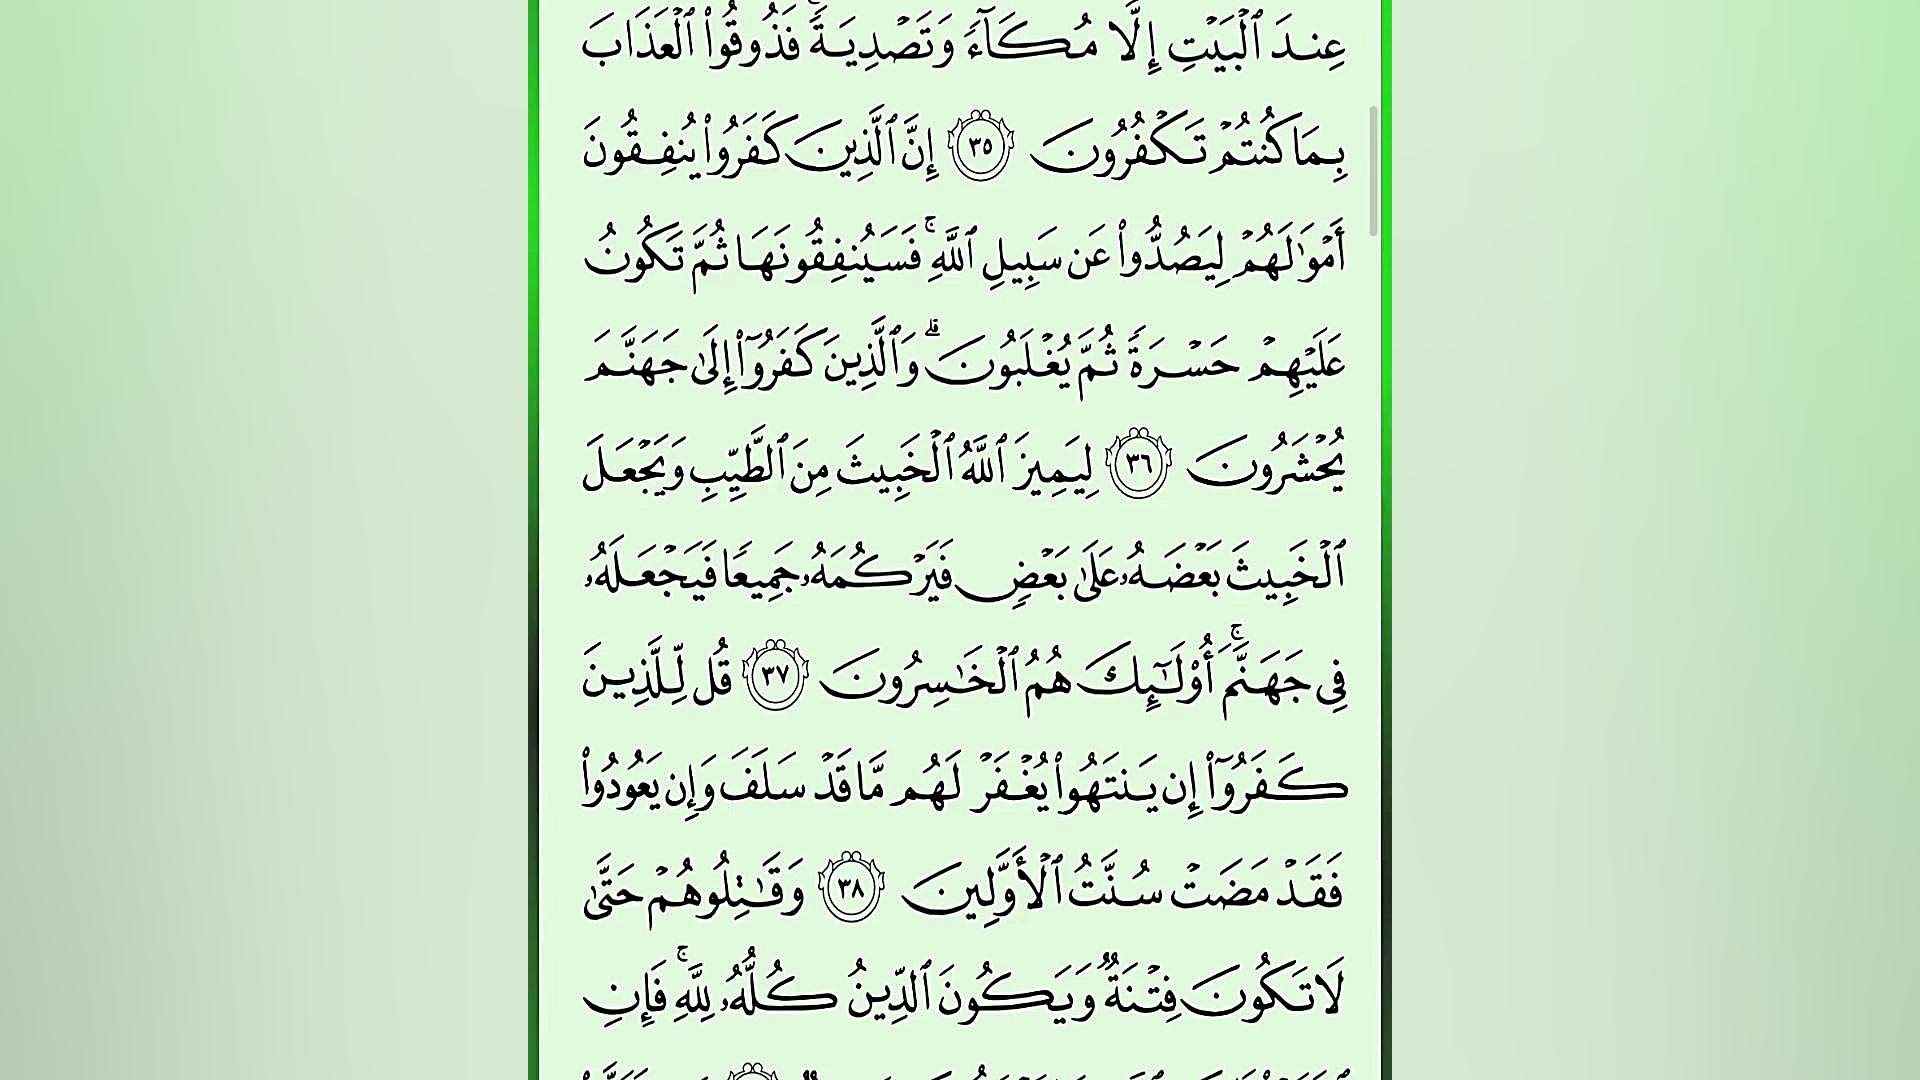 عِندَ ٱلۡبَيۡتِ إِلَّا مُكَآءٗ وَتَصۡدِيَةٗۚ فَذُوقُواْ ٱلۡعَذَابَ
بِمَا كُنتُمۡ تَكۡفُرُونَ ٣٥ إِنَّ ٱلَّذِينَ كَفَرُواْ يُنفِقُونَ
أَمۡوَٰلَهُمۡ لِيَصُدُّواْ عَن سَبِيلِ ٱللَّهِۚ فَسَيُنفِقُونَهَا ثُمَّ تَكُونُ
عَلَيۡهِمۡ حَسۡرَةٗ ثُمَّ يُغۡلَبُونَۗ وَٱلَّذِينَ كَفَرُوٓاْ إِلَىٰ جَهَنَّمَ
يُحۡشَرُونَ ٣٦ لِيَمِيزَ ٱللَّهُ ٱلۡخَبِيثَ مِنَ ٱلطَّيِّبِ وَيَجۡعَلَ
ٱلۡخَبِيثَ بَعۡضَهُۥ عَلَىٰ بَعۡضٖ فَيَرۡكُمَهُۥ جَمِيعٗا فَيَجۡعَلَهُۥ
فِي جَهَنَّمَۚ أُوْلَٰٓئِكَ هُمُ ٱلۡخَٰسِرُونَ ٣٧ قُل لِّلَّذِينَ
كَفَرُوٓاْ إِن يَنتَهُواْ يُغۡفَرۡ لَهُم مَّا قَدۡ سَلَفَ وَإِن يَعُودُواْ
فَقَدۡ مَضَتۡ سُنَّتُ ٱلۡأَوَّلِينَ ٣٨ وَقَٰتِلُوهُمۡ حَتَّىٰ
لَا تَكُونَ فِتۡنَةٞ وَيَكُونَ ٱلدِّينُ كُلُّهُۥ لِلَّهِۚ فَإِنِ